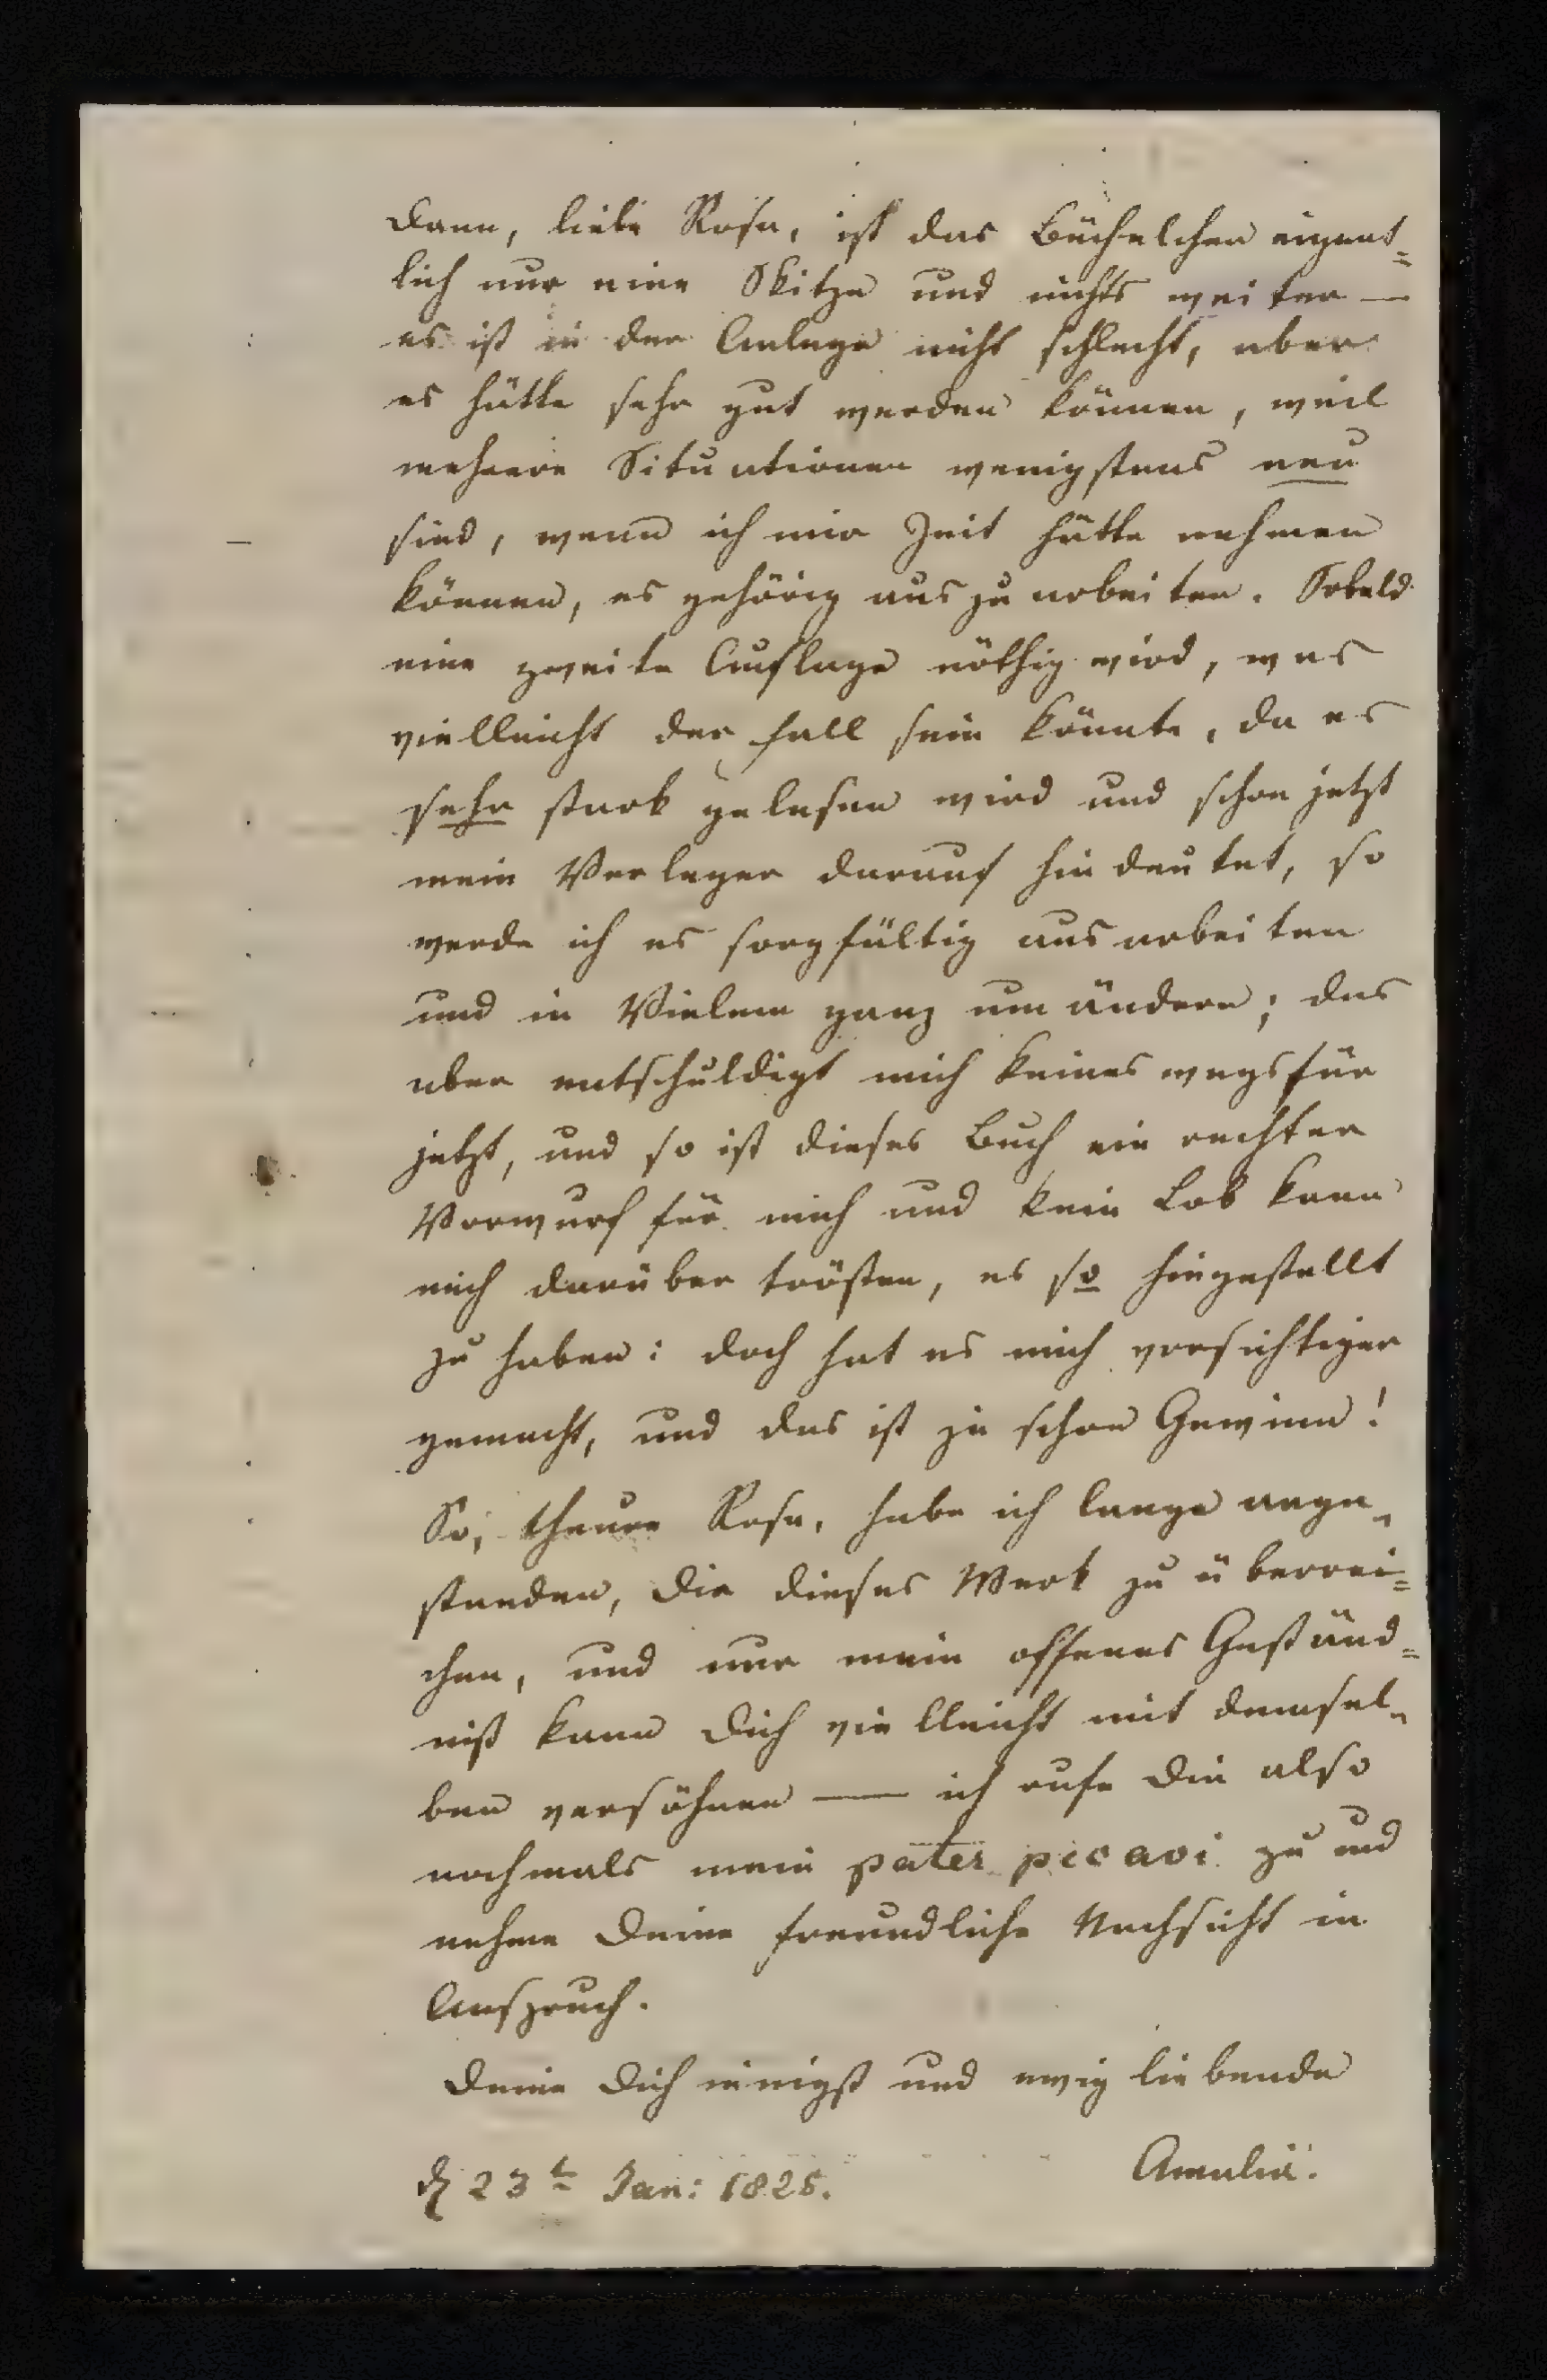 Dann, liebe Rosa, ist das Büchelchen eigent=
lich nur eine Skitze und nichts weiter —
es ist in der Anlage nicht schlecht, aber
es hätte sehr gut werden können, weil
mehrere Situationen wenigstens neu
sind, wenn ich mir Zeit hätte nehmen
können, es gehörig auszuarbeiten. Sobald
eine zweite Auflage nöthig wird, was
vielleicht der Fall sein könnte, da es
sehr stark gelesen wird und schon jetzt
mein Verleger darauf hindeutet, so
werde ich es sorgfältig ausarbeiten
und in Vielem ganz umändern; das
aber entschuldigt mich keineswegs für
jetzt, und so ist dieses Buch ein rechter
Vorwurf für mich und kein Lob kann
mich darüber trösten, es so hingestellt
zu haben: doch hat es mich vorsichtiger
gemacht, und das ist ja schon Gewinn!
So, theure Rosa, habe ich lange ange=
standen, Dir dieses Werk zu überrei=
chen, und nur mein offenes Geständ=
niß kann Dich vielleicht mit demsel=
ben versöhnen — ich rufe Dir also
nochmals mein pater peccavi zu und
nehme Deine freundliche Nachsicht in
Anspruch.
Deine Dich innigst und ewig liebende
Amalia.
d 23t Jan: 1825.